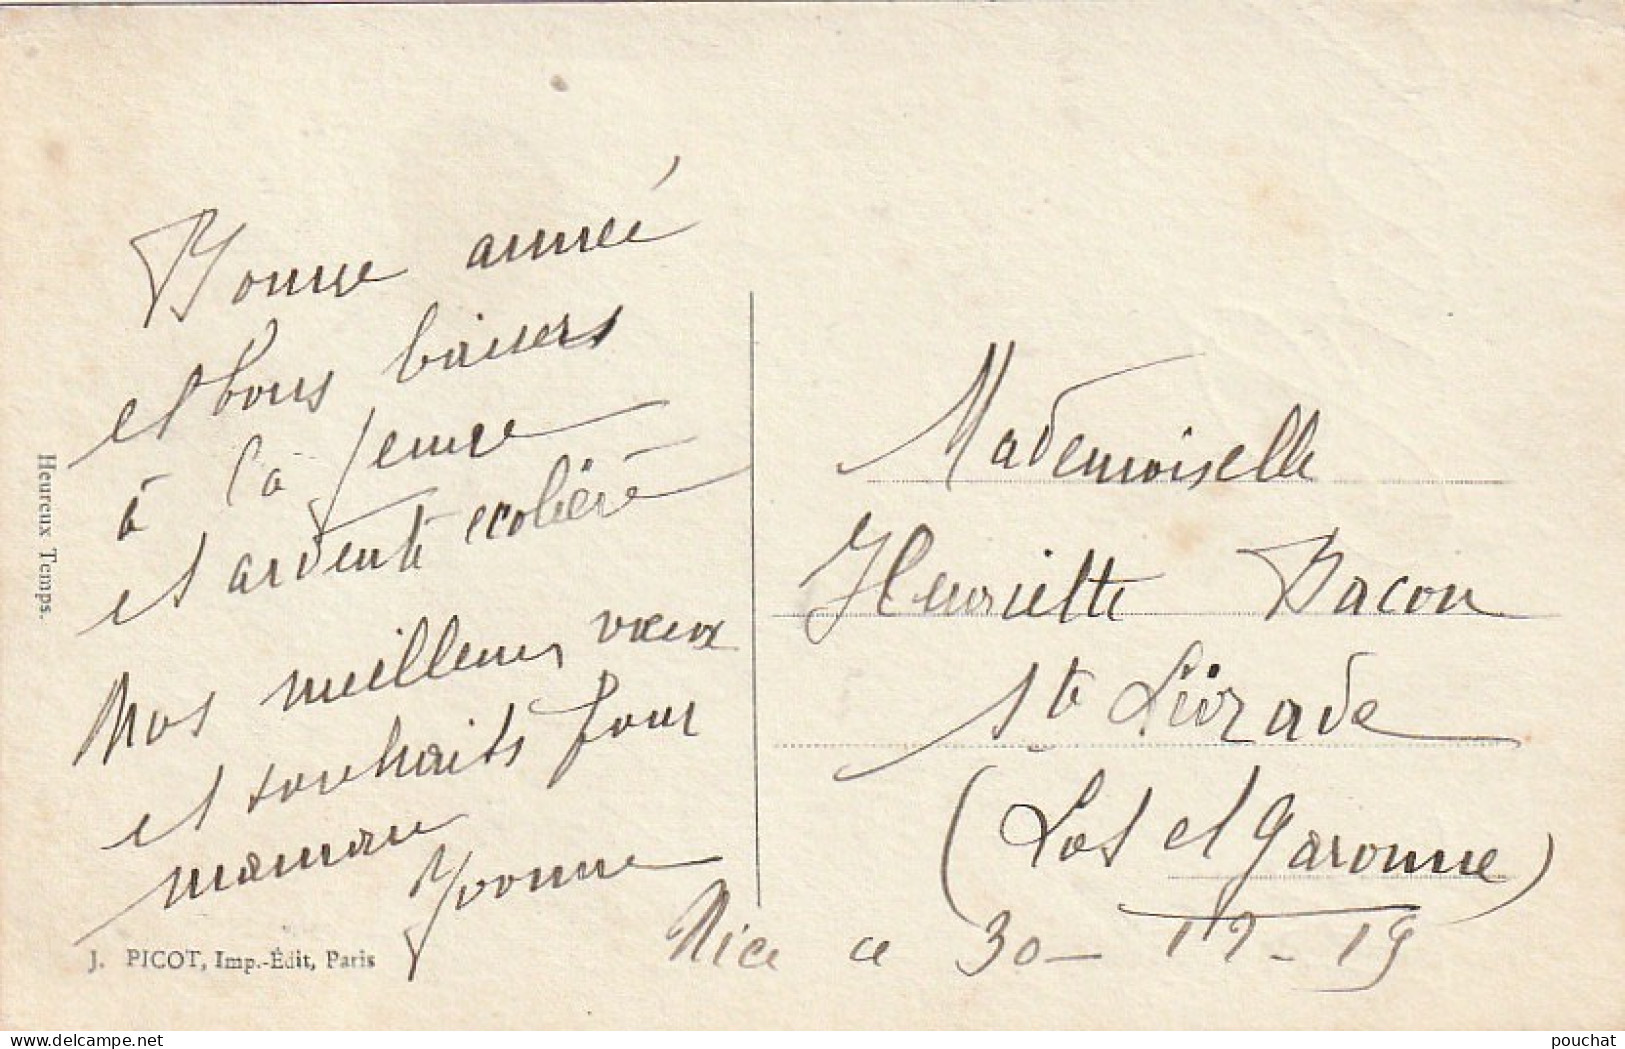 Bonne année
et bons baisers
à la jeune
et ardente ecolière
Nos meilleurs vœux
et souhaits pour
maman
Yvonne
Heureux Temps.
J. PICOT, Imp.-Édit, Paris
Mademoiselle
Henriette Bacon
Ste Livrade
(Lot et Garonne)
Nice ce 30-12-19
delcampe.net
pouchat